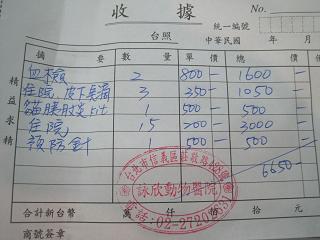 收據
No.
統一編號
台照
中華民國 年 月
摘要 數量 單價 總價
血檢 2 800- 1600-
住院 皮下點滴 3 350- 1050-
貓腰肢支kit 1 500- 500-
住院 15 200- 3000-
預防針 1 500- 500-
6650-
精益求精
台北市信義區莊敬路
詠欣動物醫院
電話:02-2720
合計新台幣 萬 仟 佰 拾 元
商號簽章